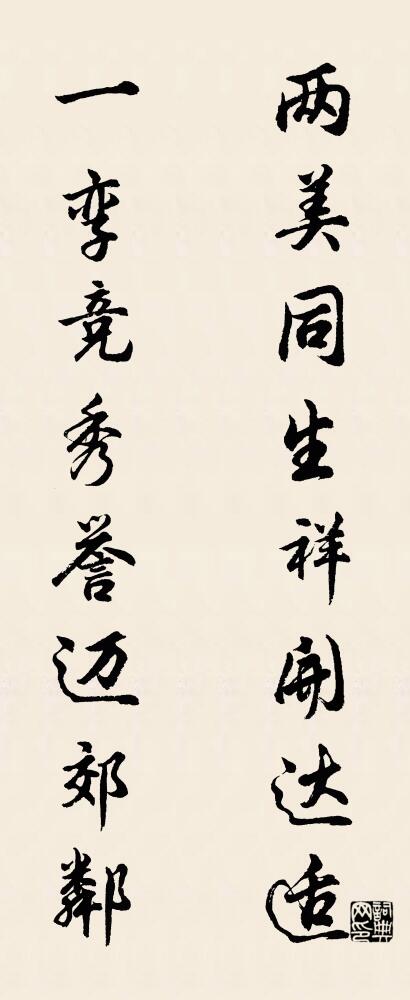 两美同生祥开达适
一孪竞秀誉迈郊鄰
詞典网印